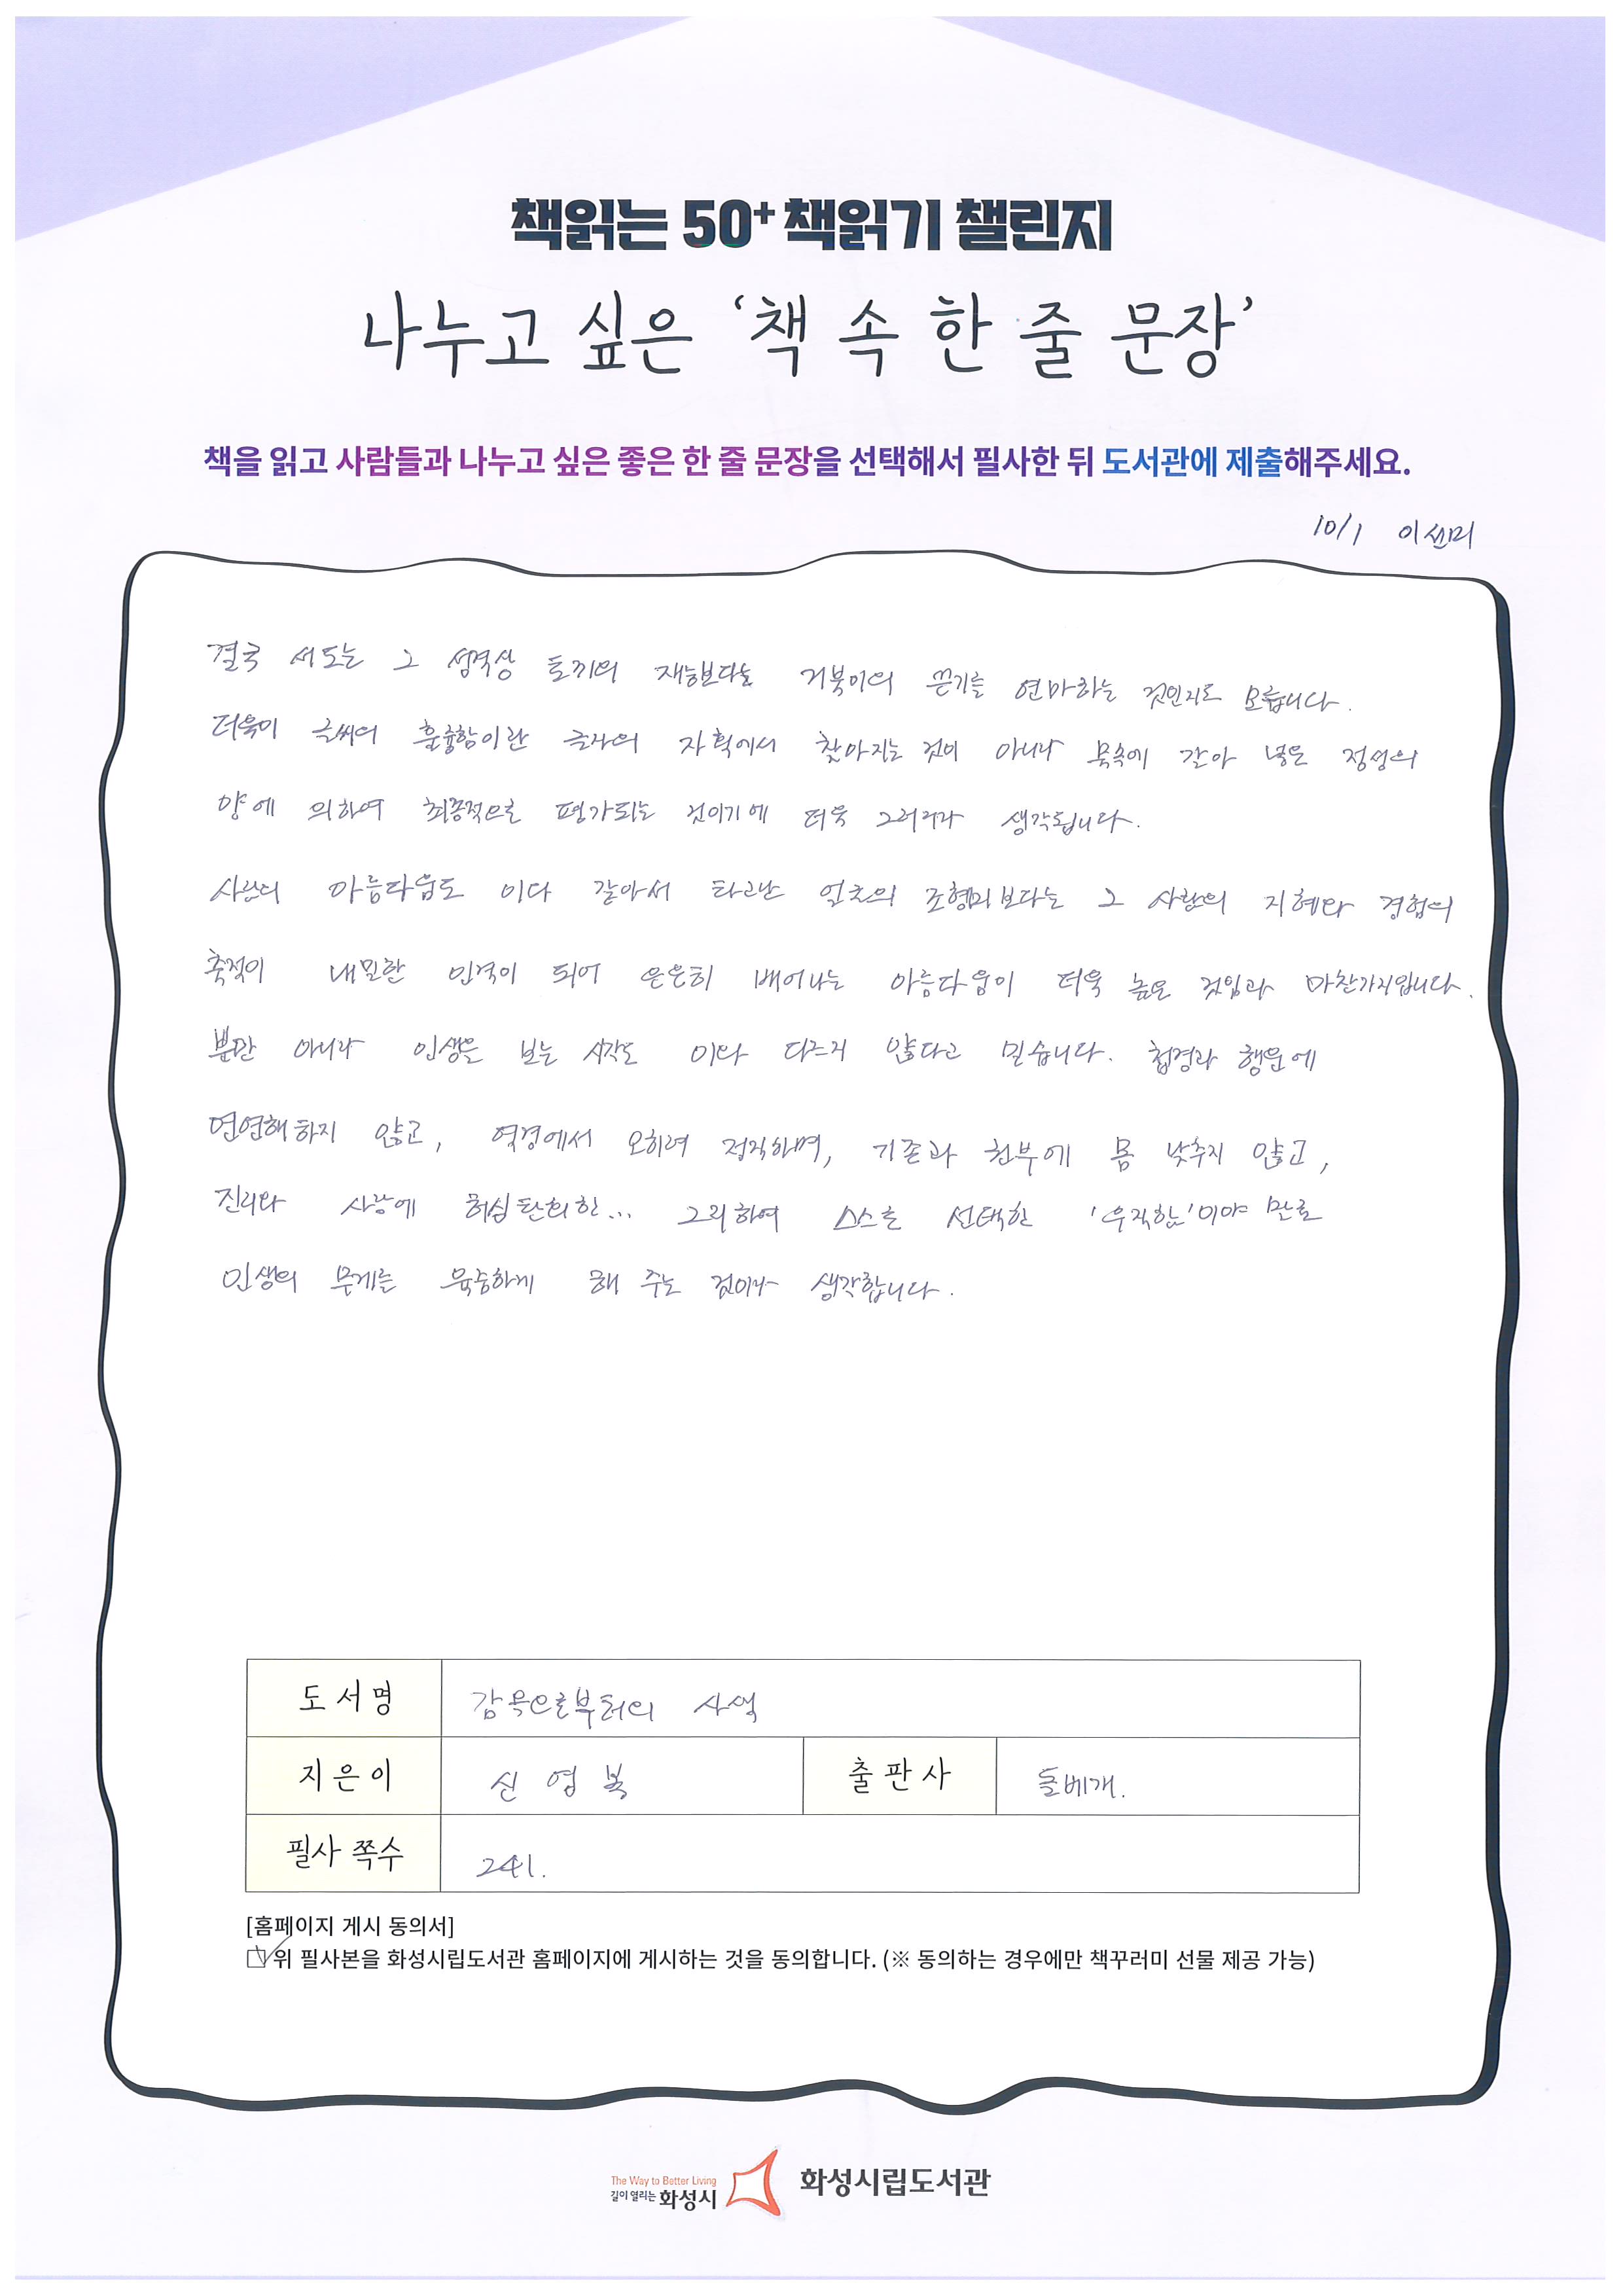 책읽는 50+ 책읽기 챌린지
나누고 싶은 '책 속 한 줄 문장'
책을 읽고 사람들과 나누고 싶은 좋은 한 줄 문장을 선택해서 필사한 뒤 도서관에 제출해주세요.
10/1 이선미
결국 서도는 그 성격상 토끼의 재능보다는 거북이의 끈기를 연마하는 것인지도 모릅니다.
더욱이 글씨의 훌륭함이란 글자의 자획에서 찾아지는 것이 아니라 묵속에 갈아 넣은 정성의
양에 의하여 최종적으로 평가되는 것이기에 더욱 그러리라 생각됩니다.
사람의 아름다움도 이와 같아서 타고난 얼굴의 조형미보다는 그 사람의 지혜와 경험의
축적이 내밀한 인격이 되어 은은히 배어나는 아름다움이 더욱 높은 것임과 마찬가지입니다.
뿐만 아니라 인생을 보는 시각도 이와 다르지 않다고 믿습니다. 첩경과 행운에
연연해하지 않고, 역경에서 오히려 정직하며, 기존과 권부에 몸 낮추지 않고,
진리와 사랑에 허심탄회한... 그리하여 스스로 선택한 '우직함'이야 만로
인생의 무게를 육중하게 해 주는 것이라 생각합니다.
도서명 감옥으로부터의 사색
지은이 신영복 출판사 돌베개.
필사 쪽수 241.
[홈페이지 게시 동의서]
위 필사본을 화성시립도서관 홈페이지에 게시하는 것을 동의합니다. (※ 동의하는 경우에만 책꾸러미 선물 제공 가능)
The Way to Better Living
길이 열리는 화성시 화성시립도서관